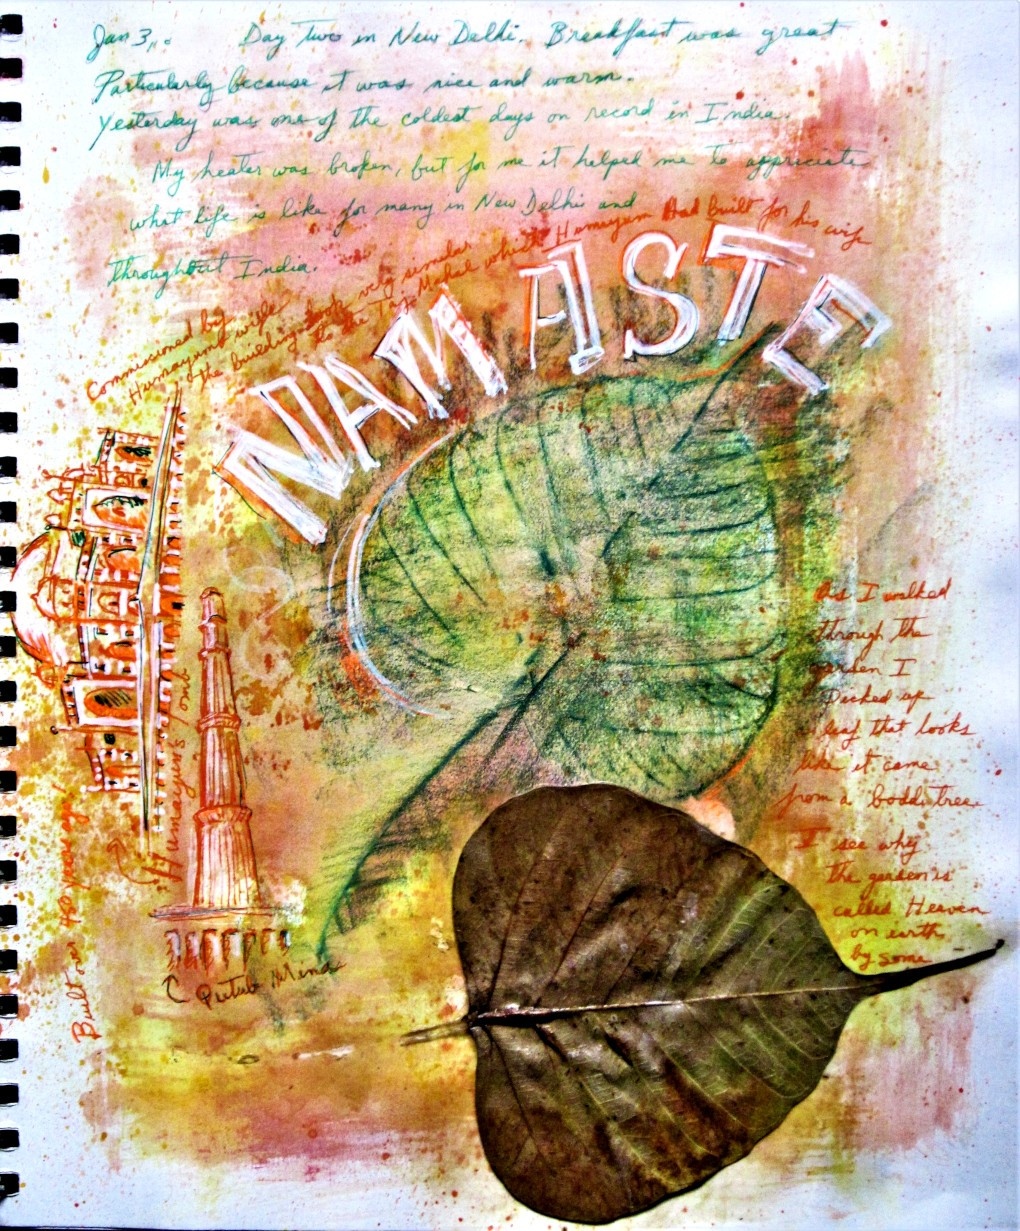 Jan 3, Day Two in New Delhi. Breakfast was great
Particularly because it was nice and warm.
Yesterday was one of the coldest days on record in India.
My heater was broken, but for me it helped me to appreciate
what life is like for many in New Delhi and
throughout India.
Commissioned by
Humayuns wife
the building look very similar
to the Taj Mahal which Humayun Had built for his wife
NAMASTE
As I walked
through the
garden I
Picked up
leaf that looks
like it came
from a boddi tree
I see why
the garden is
called Heaven
on earth
by some
Humayun's Tomb
Built over
years ago!
Qutub Mina